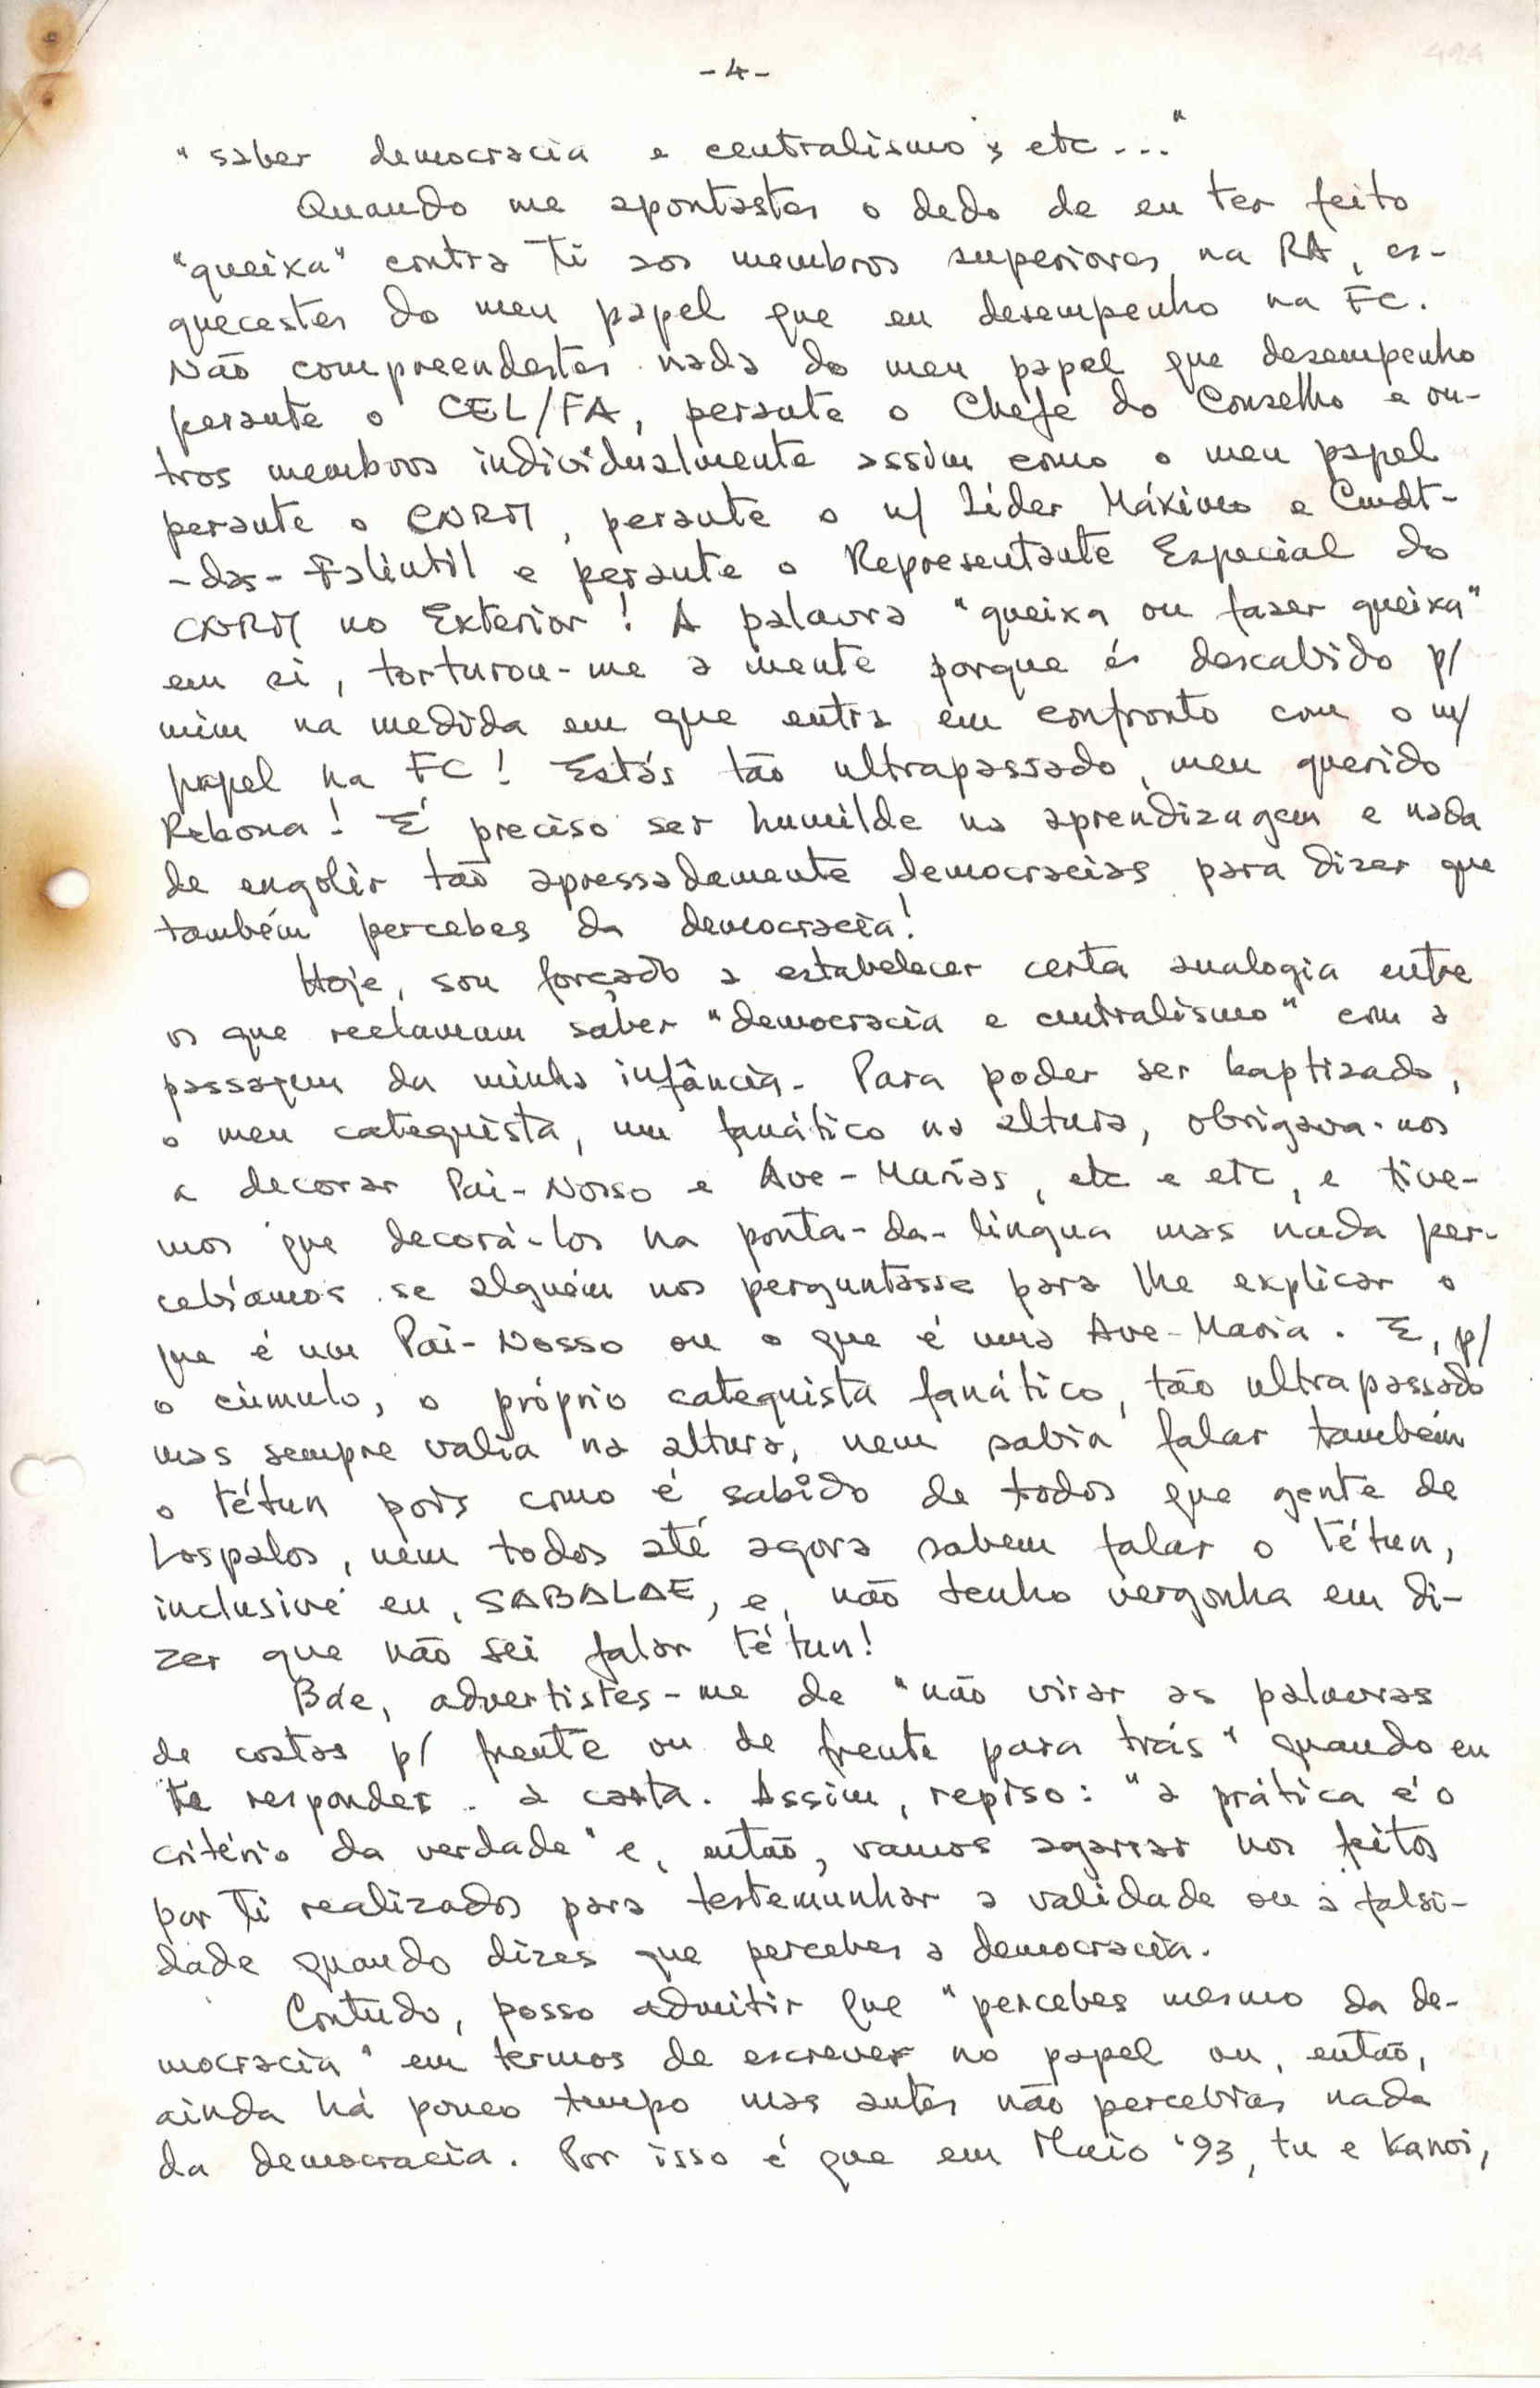 -4-
"saber democracia e centralismo, etc..."
Quando me apontastes o dedo de eu ter feito
"queixa" contra ti aos membros superiores na RA, es-
quecestes do meu papel que eu desempenho na FC.
Não compreendestes nada do meu papel que desempenho
perante o CEL/FA, perante o Chefe do Conselho e ou-
tros membros individualmente assim como o meu papel
perante o CNRM, perante o n/ Líder Máximo e Cmdt-
-das-Falintil e perante o Representante Especial do
CNRM no Exterior! A palavra "queixa ou fazer queixa"
em si, torturou-me a mente porque és descabido p/
mim na medida em que entra em confronto com o m/
papel na FC! Estás tão ultrapassado, meu querido
Rebona! É preciso ser humilde na aprendizagem e nada
de engolir tão apressadamente democracias para dizer que
também percebes da democracia!
Hoje, sou forçado a estabelecer certa analogia entre
os que reclamam saber "democracia e centralismo" com a
passagem da minha infância. Para poder ser baptizado,
o meu catequista, um fanático na altura, obrigava-nos
a decorar Pai-Nosso e Ave-Marias, etc e etc, e tive-
mos que decorá-los na ponta-da-língua mas nada per-
cebíamos se alguém nos perguntasse para lhe explicar o
que é um Pai-Nosso ou o que é uma Ave-Maria. E, p/
o cúmulo, o próprio catequista fanático, tão ultrapassado
mas sempre valia na altura, nem sabia falar também
o tétun pois como é sabido de todos que gente de
Lospalos, nem todos até agora sabem falar o tétun,
inclusivé eu, SABALAE, e, não tenho vergonha em di-
zer que não sei falar tétun!
Báe, advertistes-me de "não virar as palavras
de costas p/ frente ou de frente para trás" quando eu
te responder à carta. Assim, repiso: "a prática é o
critério da verdade" e, então, vamos agarrar nos feitos
por ti realizados para testemunhar a validade ou a falsi-
dade quando dizes que percebes a democracia.
Contudo, posso admitir que "percebes mesmo da de-
mocracia" em termos de escrever no papel ou, então,
ainda há pouco tempo mas antes não percebias nada
da democracia. Por isso é que em Maio '93, tu e Kanoi,